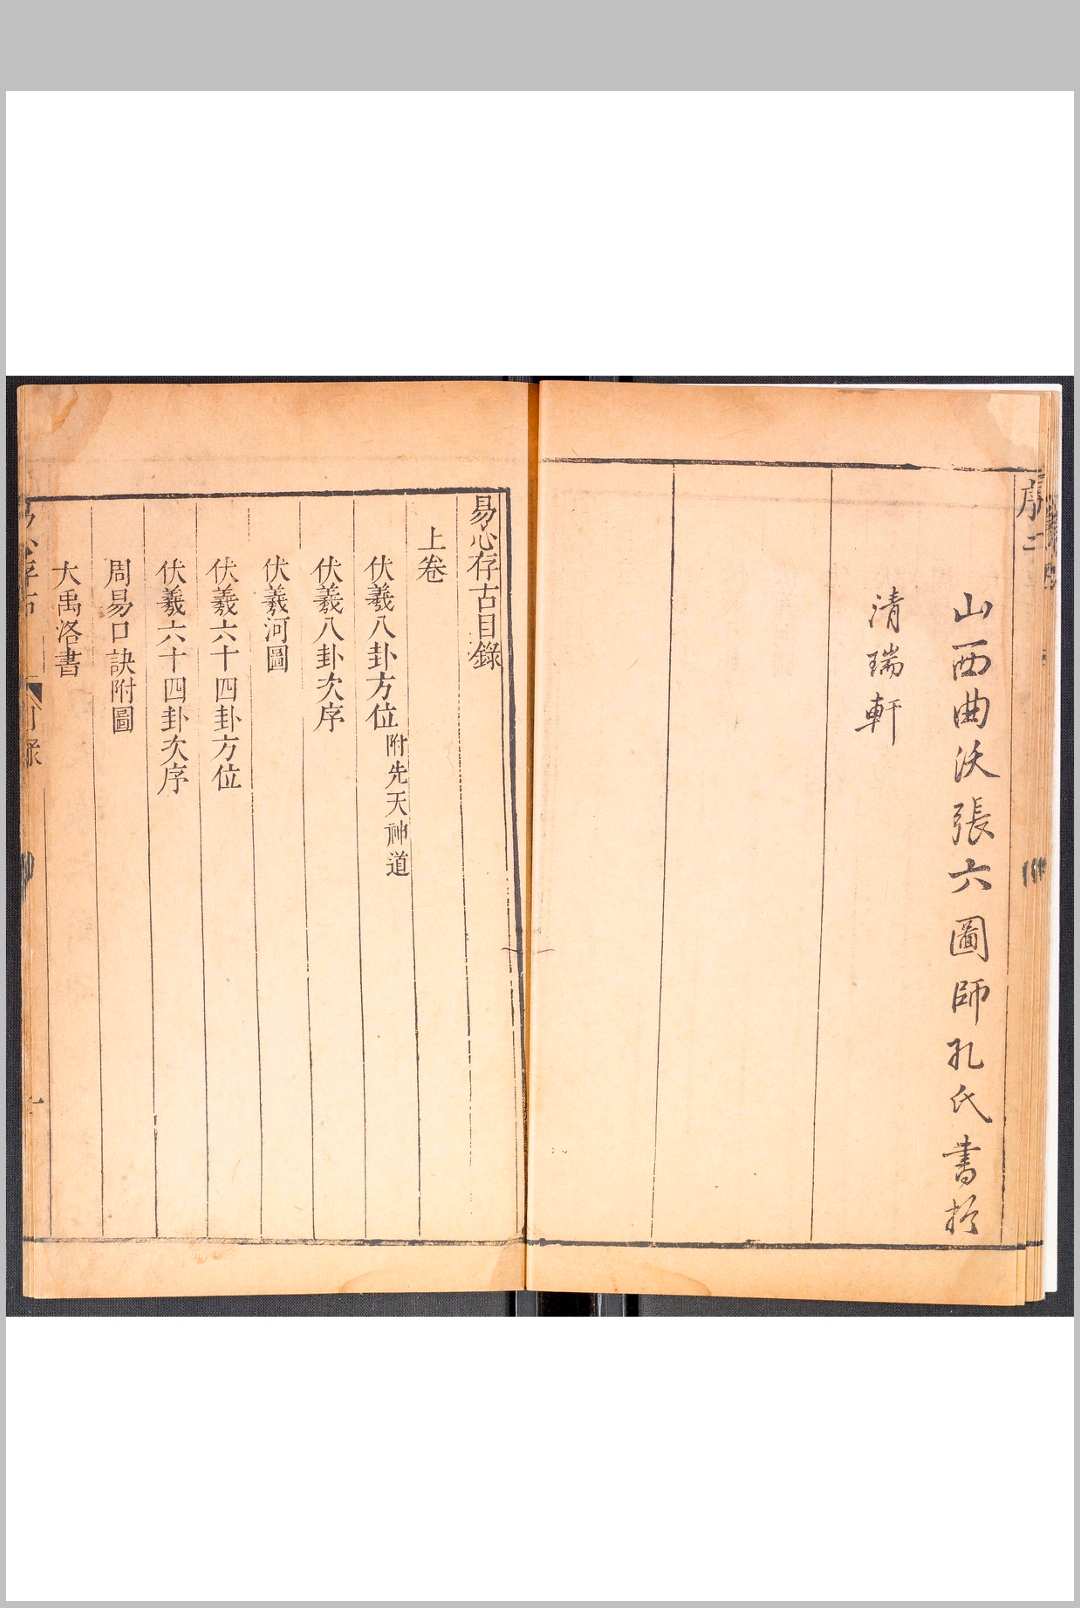 序二
山西曲沃張六圖師孔氏書於
清瑞軒
易心存古目錄
上卷
伏羲八卦方位附先天神道
伏羲八卦次序
伏羲河圖
伏羲六十四卦方位
伏羲六十四卦次序
周易口訣附圖
大禹洛書